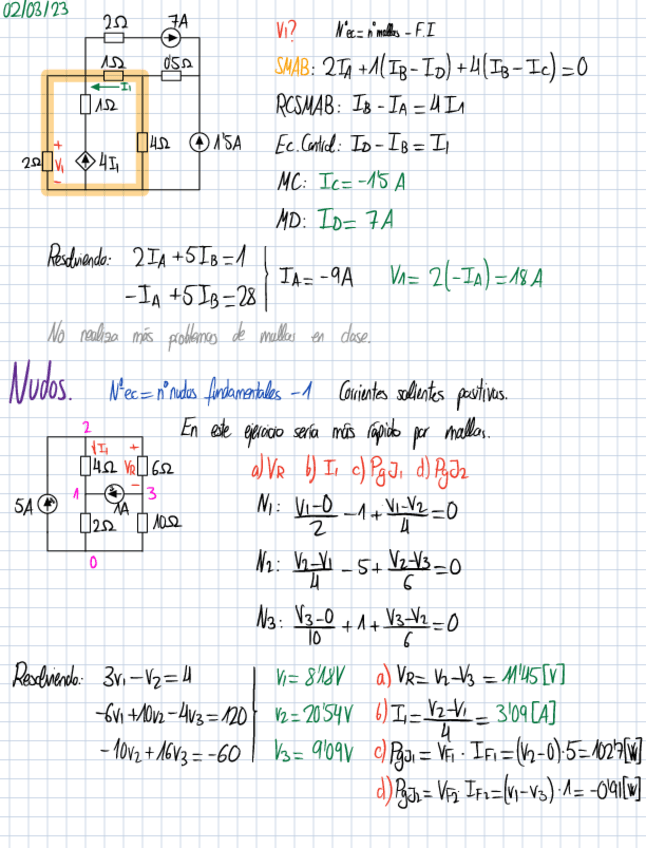 02/03/23
2Ω 7A
1Ω 0'5Ω
I₁
1Ω
4Ω 1'5A
2Ω V₁ 4I₁
+
-
V₁? NºEc = nº mallas - F.I
SMAB: 2I_A + 1(I_B - I_D) + 4(I_B - I_C) = 0
RCSMAB: I_B - I_A = 4I₁
Ec. Control: I_D - I_B = I₁
MC: I_C = -1'5 A
MD: I_D = 7A
Resolviendo: 2I_A + 5I_B = 1
-I_A + 5I_B = 28
I_A = -9A V₁ = 2(-I_A) = 18 A
No realiza más problemas de mallas en clase.
Nudos. Nºec = nº nudos fundamentales - 1 Corrientes salientes positivas.
En este ejercicio sería más rápido por mallas.
2
I₁ +
4Ω V_R 6Ω
-
1 3
5A 1A
2Ω 10Ω
0
a) V_R b) I₁ c) PgJ₁ d) PgJ₂
N₁: (V₁-0)/2 - 1 + (V₁-V₂)/4 = 0
N₂: (V₂-V₁)/4 - 5 + (V₂-V₃)/6 = 0
N₃: (V₃-0)/10 + 1 + (V₃-V₂)/6 = 0
Resolviendo: 3v₁ - v₂ = 4
-6v₁ + 10v₂ - 4v₃ = 120
-10v₂ + 16v₃ = -60
V₁ = 8'18V
V₂ = 20'54V
V₃ = 9'09V
a) V_R = V₂ - V₃ = 11'45 [V]
b) I₁ = (V₂-V₁)/4 = 3'09 [A]
c) PgJ₁ = V_F₁ · I_F₁ = (V₂-0)·5 = 102'7 [W]
d) PgJ₂ = V_F₂ · I_F₂ = (v₁-v₃)·1 = -0'91 [W]